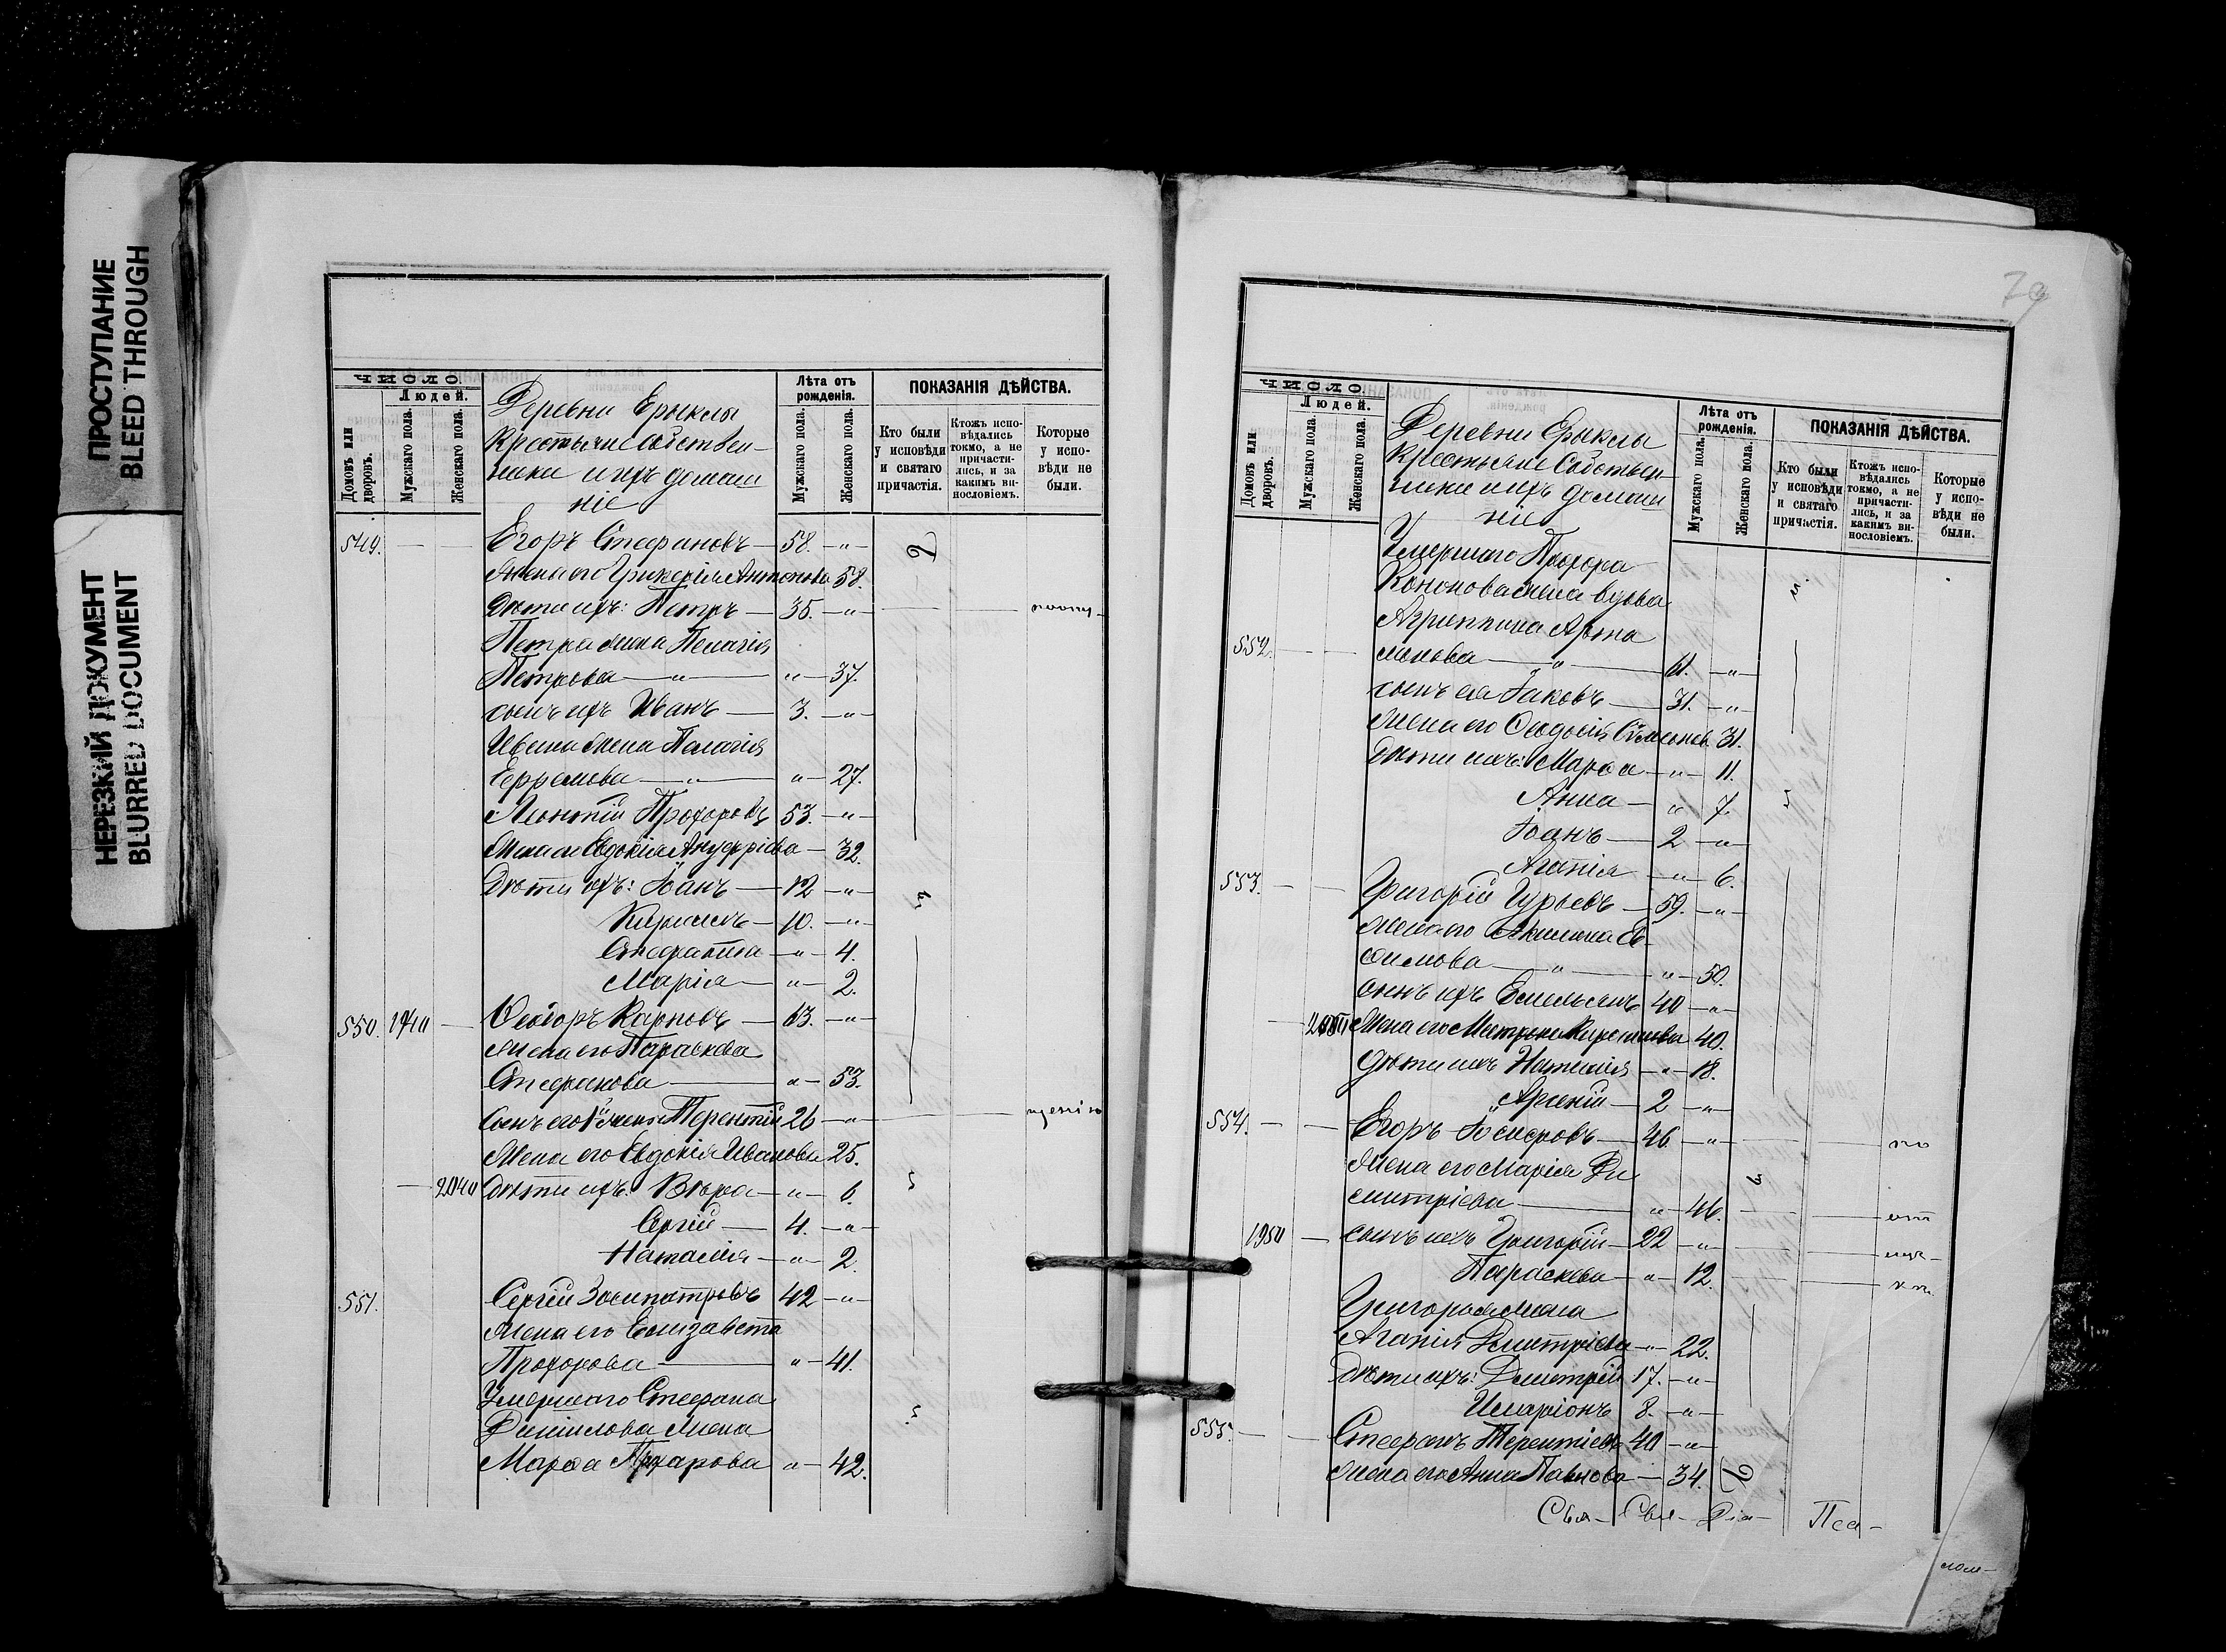 ПРОСТУПАНИЕ
BLEED THROUGH
НЕРЕЗКИЙ ДОКУМЕНТ
BLURRED DOCUMENT
ЧИСЛО
Домовъ или дворовъ.
Людей.
Мужскаго пола.
Женскаго пола.
Деревни Ерыклы
Крестьяне Собствен-
ники и ихъ домаш
ніе
Лѣта отъ рожденія.
Мужскаго пола.
Женскаго пола.
ПОКАЗАНІЯ ДѢЙСТВА.
Кто были у исповѣди и святаго причастія.
Ктожъ исповѣдались токмо, а не причастились, и за какимъ винословіемъ.
Которые у исповѣди не были.
549. Егоръ Стефановъ — 58. — „ —
Жена его Гликерія Антонова 58.
Дѣти ихъ: Петръ — 35. — „ —
Петра жена Пелагія
Петрова — „ — „ — 37.
сынъ ихъ Иванъ — 3. — „ —
Ивана жена Пелагія
Ефремова — „ — „ — 27.
Леонтій Прохоровъ 53. — „ —
Жена его Евдокія Ануфріева — 32.
Дѣти ихъ: Іоанъ — 12 — „ —
Кирилъ — 10. — „ —
— „ — 4.
Марія — „ — 2.
550. 1940 — Ѳеодоръ Карповъ — 63. — „ —
Жена его Параскева
Стефанова — „ — 53.
Терентій 26 — „ —
Жена его Евдокія Иванова 25.
— 2040 Дѣти ихъ: Вѣра — „ — 6.
Сергій — 4. — „ —
Наталія — „ — 2.
551. Сергій Зосипатровъ 42 — „ —
Жена его Елизавета
Прохорова — „ — 41.
Умершаго Стефана
Данилова жена
Марѳа — „ — 42.
79
ЧИСЛО
Домовъ или дворовъ.
Людей.
Мужскаго пола.
Женскаго пола.
Деревни Ерыклы
Крестьяне Собствен
ники и ихъ домаш
ніе
Лѣта отъ рожденія.
Мужскаго пола.
Женскаго пола.
ПОКАЗАНІЯ ДѢЙСТВА.
Кто были у исповѣди и святаго причастія.
Ктожъ исповѣдались токмо, а не причастились, и за какимъ винословіемъ.
Которые у исповѣди не были.
Умершаго Прохора
Кононова жена вдова
Агриппина Арта
552. монова — „ — 61. — „ —
сынъ ея Іаковъ — 31. — „ —
Жена его Ѳеодосія Симеонов 31.
Дѣти ихъ: Марѳа — „ — 11.
Анна — „ 7.
Іоанъ — 2 — „ —
Агапія — „ — 6.
553. Григорій Гурьевъ — 59. — „ —
Жена его Акилина Ев
ѳимова — „ — „ — 50.
сынъ ихъ Емельянъ 40 — „ —
Жена его Матрона 40.
Дѣти ихъ Наталія — „ — 18.
Арсеній — 2 — „ —
554. — — Егоръ Іосифовъ — 46 — „ —
Жена его Марія Ди
митріева — „ — 46.
1950 — сынъ ихъ Григорій — 22 — „ —
Параскева — „ — 12.
Григорія жена
Агапія Димитріева — „ — 22.
Дѣти ихъ: Димитрій 17. — „ —
Иларіонъ 8. — „ —
555. — — Стефанъ Терентіевъ 40 — „ —
Жена его Анна Павлова — 34.
Свя- Свя- Діа- Пса-
лом-